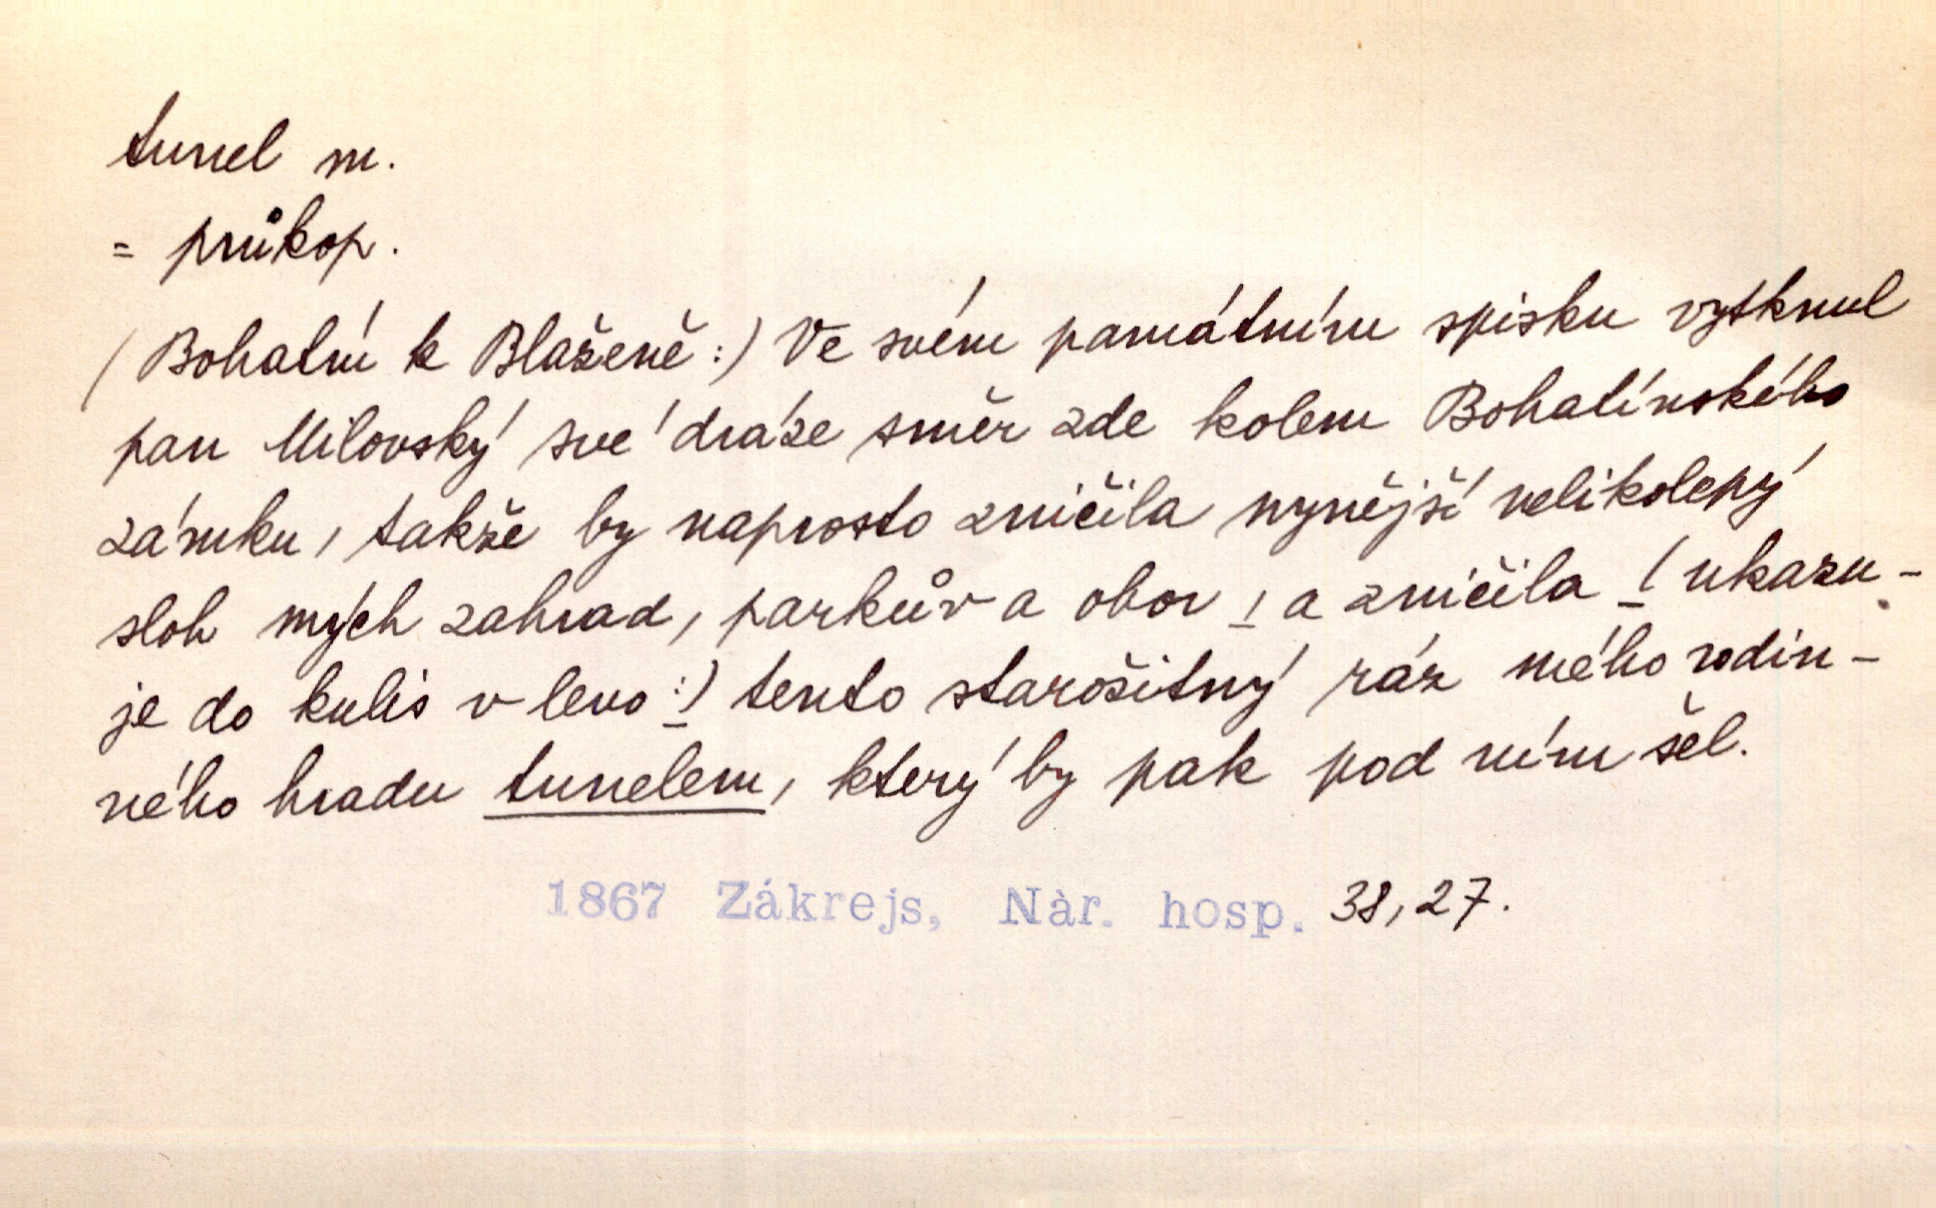 tunel m.
= průkop.
(Bohatín k Blaženě:) Ve svém památním spisku vytknul
pan Milovský své dráze směr zde kolem Bohatínského
zámku, takže by naprosto zničila nynější velikolepý
sloh mých zahrad, parkův a obor, a zničila (ukazu-
je do kulis v levo:) tento starožitný ráz mého rodin-
ného hradu tunelem, který by pak pod ním šel.
1867 Zákrejs, Nàr. hosp. 38, 27.